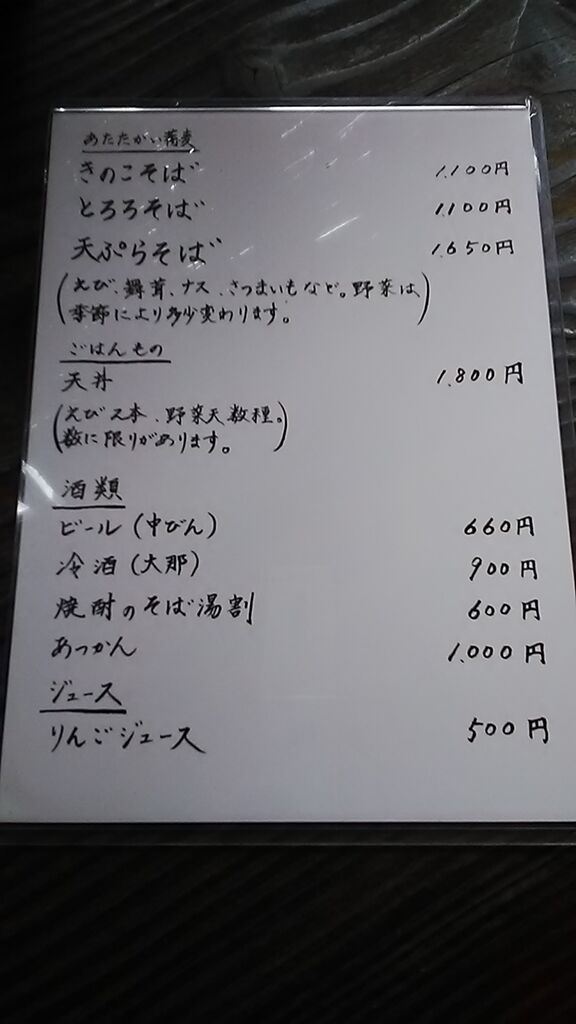 あたたかい蕎麦
きのこそば 1,100円
とろろそば 1,100円
天ぷらそば 1,650円
(えび、舞茸、ナス、さつまいもなど。野菜は
季節により多少変わります。)
ごはんもの
天丼 1,800円
(えび2本、野菜天数種。
数に限りがあります。)
酒類
ビール(中びん) 660円
冷酒(大那) 900円
焼酎のそば湯割 600円
あつかん 1,000円
ジュース
りんごジュース 500円